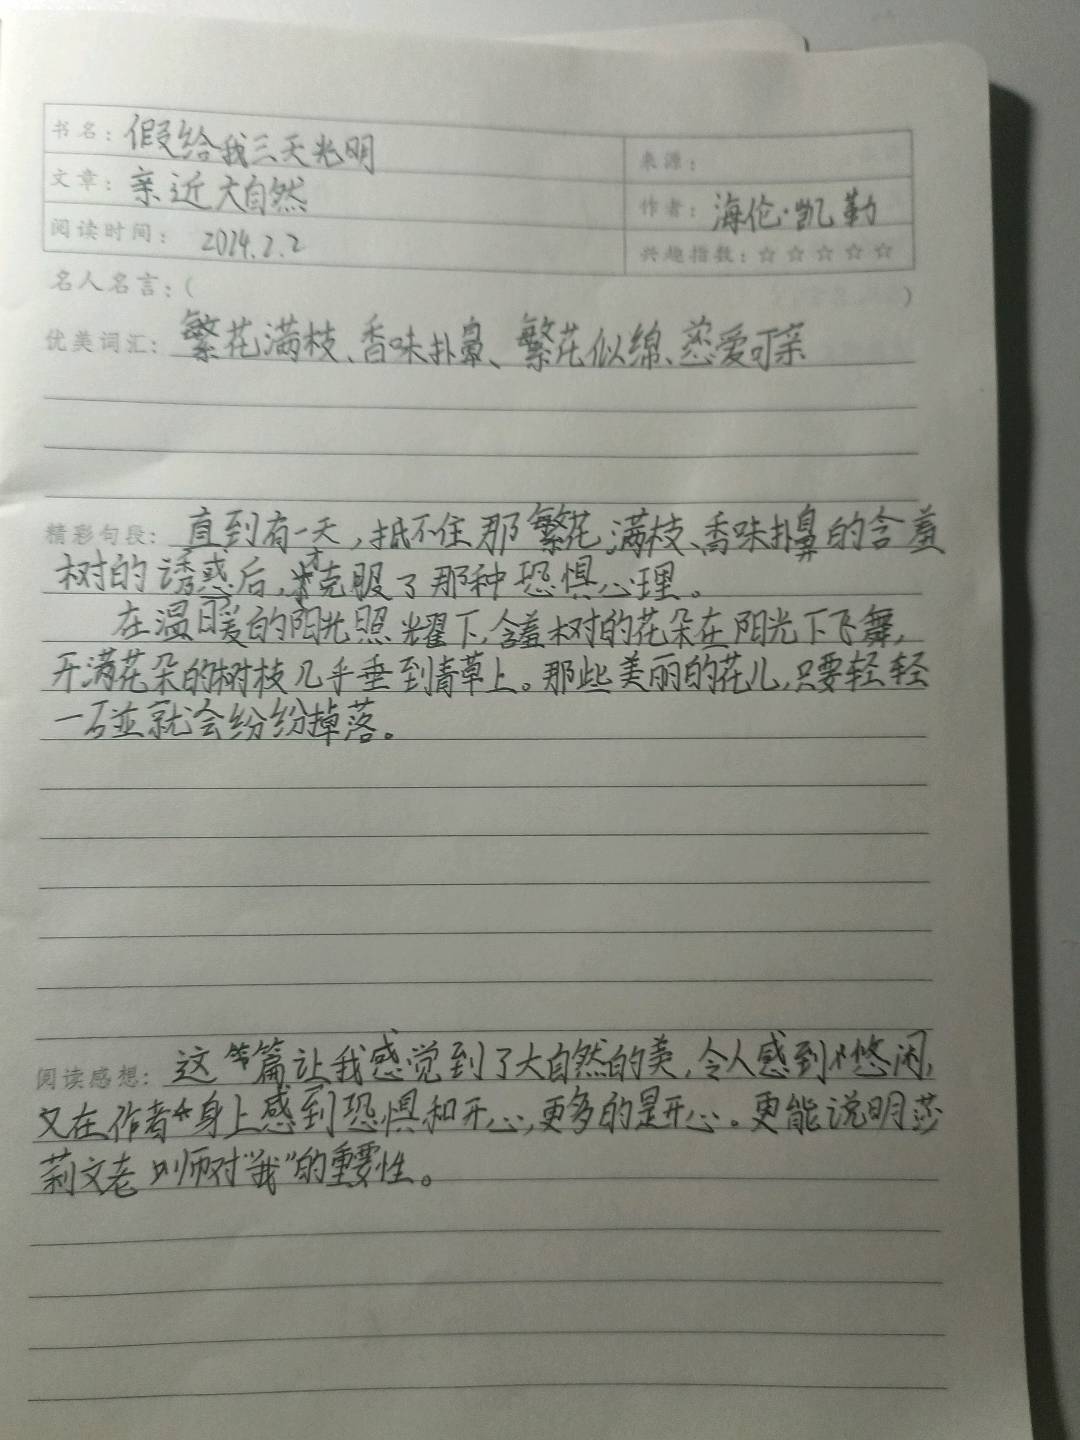 书名：假给我三天光明
来源：
文章：亲近大自然
作者：海伦·凯勒
阅读时间：2024.2.2
兴趣指数：☆☆☆☆☆
名人名言：（ ）
优美词汇：繁花满枝、香味扑鼻、繁花似绵、慈爱可亲
精彩句段：直到有一天，抵不住那繁花满枝、香味扑鼻的含羞
树的诱惑后，才克服了那种恐惧心理。
在温暖的阳光照耀下，含羞树的花朵在阳光下飞舞，
开满花朵的树枝几乎垂到青草上。那些美丽的花儿，只要轻轻
一碰就会纷纷掉落。
阅读感想：这篇让我感觉到了大自然的美，令人感到悠闲，
又在作者身上感到恐惧和开心，更多的是开心。更能说明莎
莉文老师对“我”的重要性。